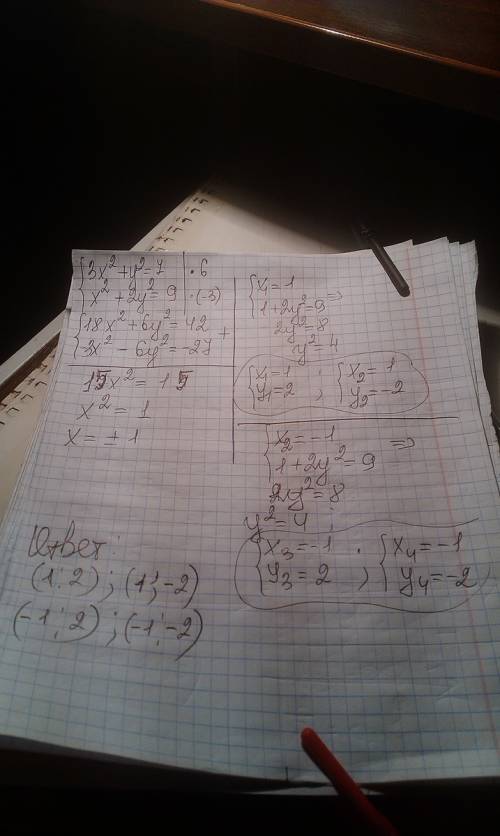 {3x²+y²=7 | ·6
{x²+2y²=9 | ·(-3)
{18x²+6y²=42
{-3x²-6y²=-27 +
15x²=15
x²=1
x=±1
{x₁=1
{1+2y²=9 ⇒
2y²=8
y²=4
{x₁=1 ; {x₂=1
{y₁=2 {y₂=-2
{x₂=-1
{1+2y²=9 ⇒
2y²=8
y²=4
{x₃=-1 ; {x₄=-1
{y₃=2 {y₄=-2
Ответ:
(1;2); (1;-2)
(-1;2); (-1;-2)